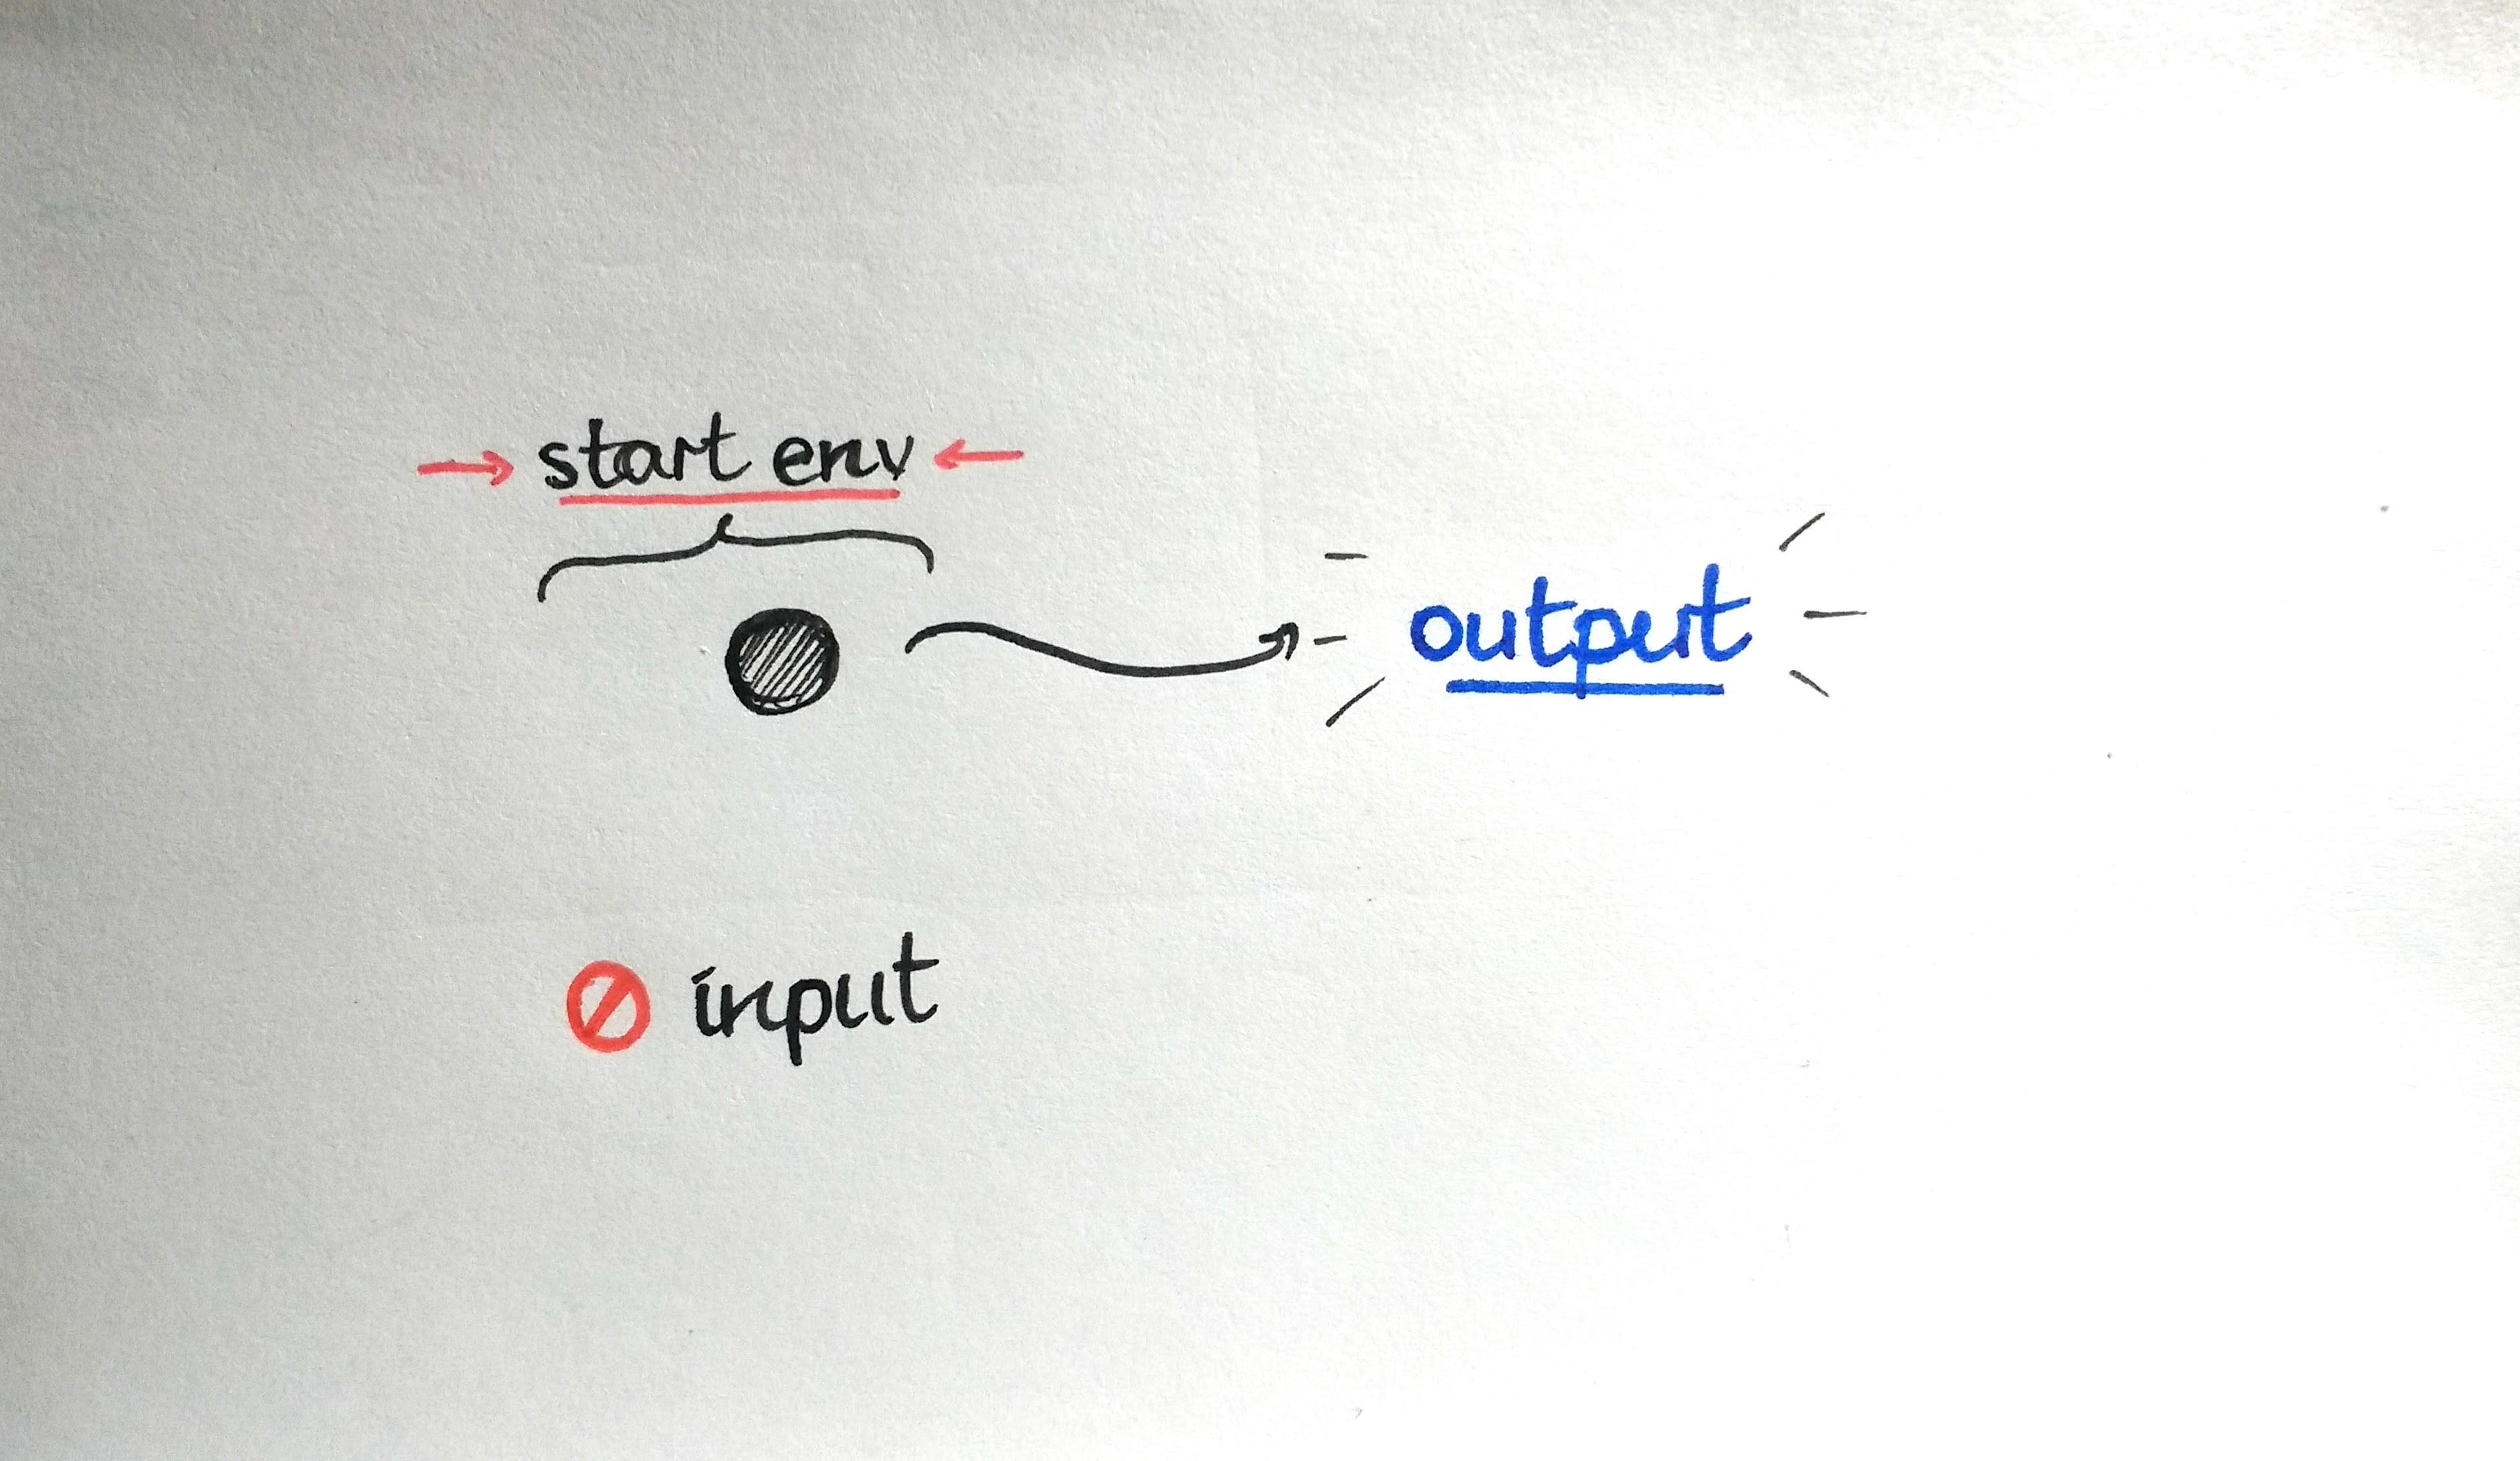 start env
output
input